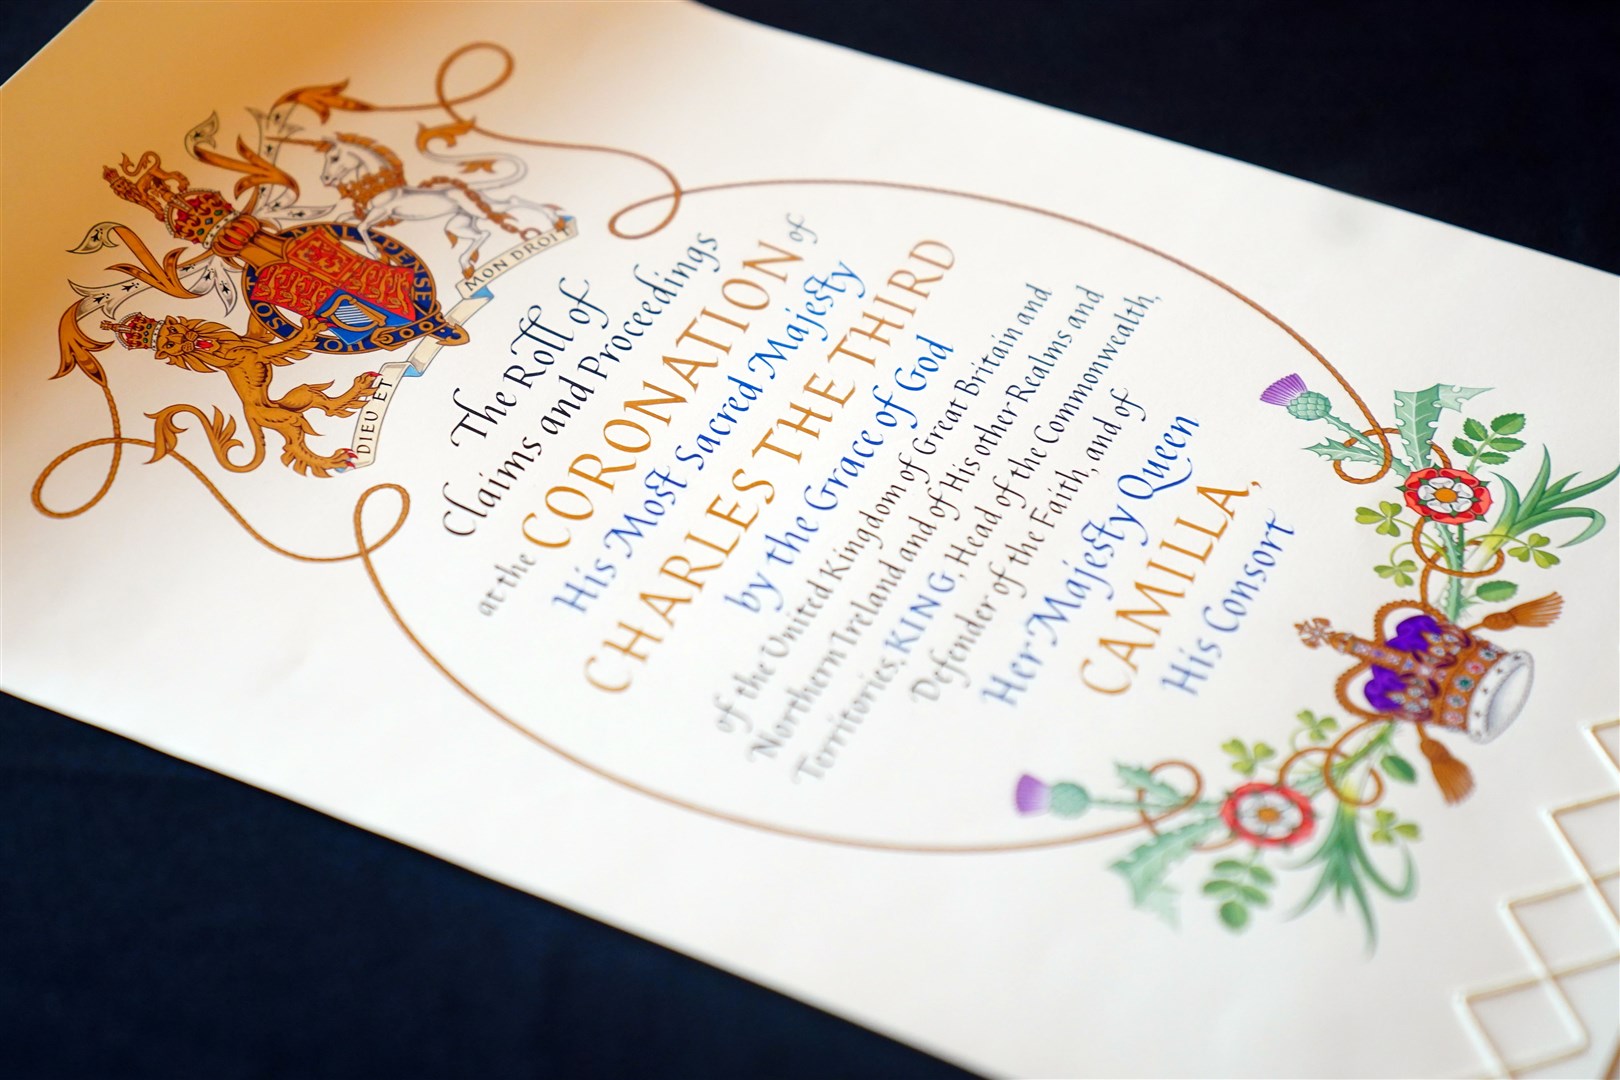 HONI SOIT QUI MAL Y PENSE
DIEU ET MON DROIT
The Roll of
Claims and Proceedings
at the CORONATION of
His Most Sacred Majesty
CHARLES THE THIRD
by the Grace of God
of the United Kingdom of Great Britain and
Northern Ireland and of His other Realms and
Territories, KING, Head of the Commonwealth,
Defender of the Faith, and of
Her Majesty Queen
CAMILLA,
His Consort